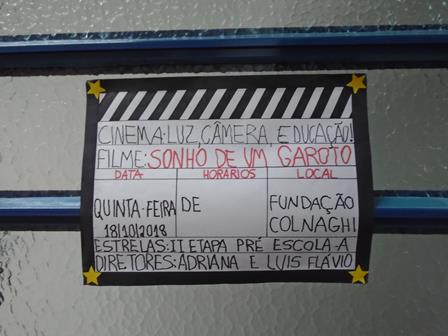 CINEMA: LUZ, CÂMERA, EDUCAÇÃO!
FILME: SONHO DE UM GAROTO
DATA HORÁRIOS LOCAL
QUINTA-FEIRA DE FUNDAÇÃO
18/10/2018 COLNAGHI
ESTRELAS: II ETAPA PRÉ ESCOLA-A
DIRETORES: ADRIANA E LUIS FLÁVIO